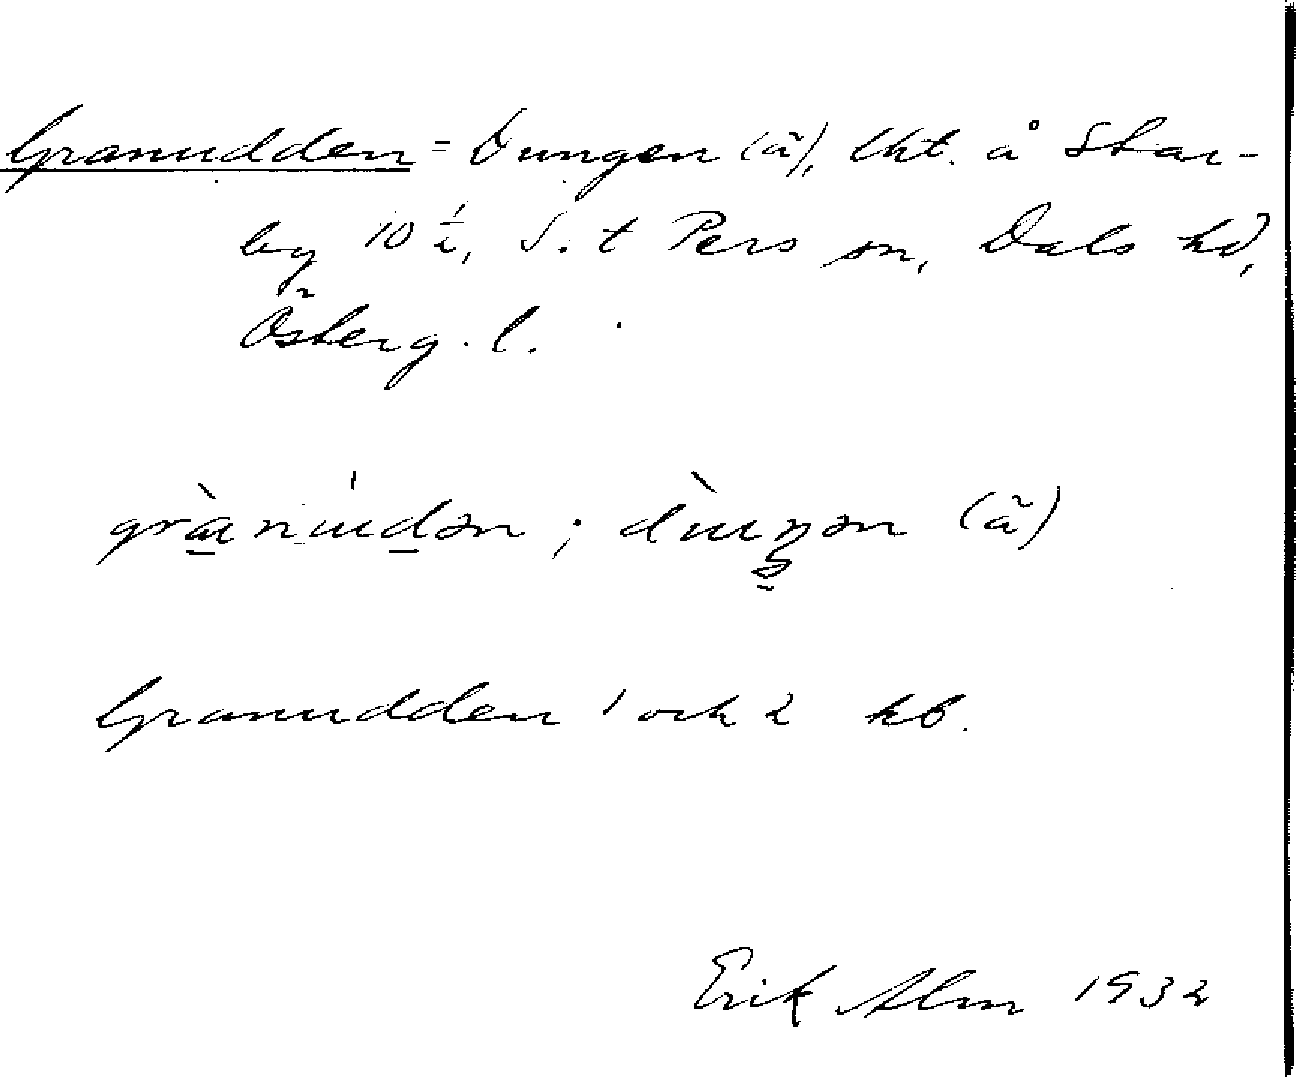 Granudden = Dungen (ä), lht. å Star-
by 10 ½, S. t Pers sn, Dals hd,
Österg. l.
grànu̇dən ; dùŋən (ä)
Granudden 1 och 2 kb.
Erik Alm 1932